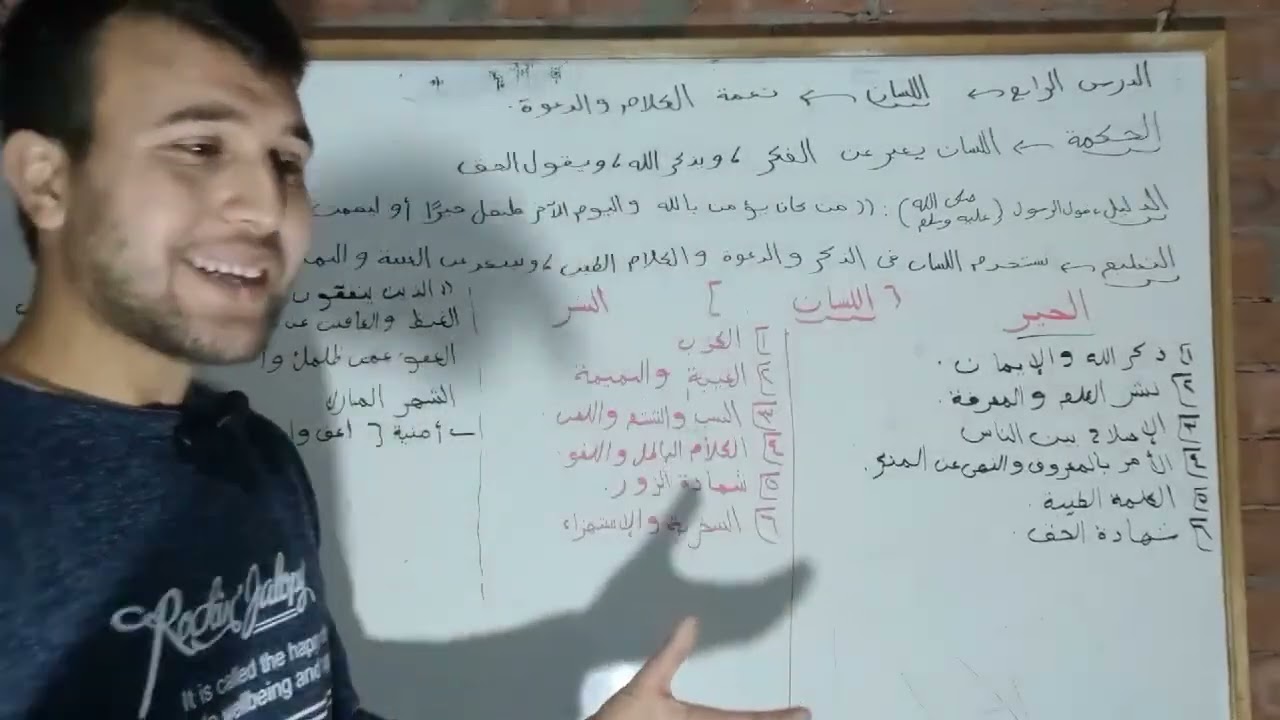 الدرس الرابع ← اللسان ← نعمة الكلام والدعوة.
الحكمة ← اللسان يعبر عن الفكر، ويذكر الله، ويقول الحق
الدليل، قول الرسول (صلى الله عليه وسلم): ((من كان يؤمن بالله واليوم الآخر فليقل خيرًا أو ليصمت
التطبيق ← نستخدم اللسان فى الذكر والدعوة والكلام الطيب، و الغيبة و
الخير
[1 ذكر الله والإيمان.
[2 نشر العلم والمعرفة.
الإصلاح بين الناس
الأمر بالمعروف والنهى عن المنكر.
[5 الكلمة الطيبة.
[6 شهادة الحق.
{ اللسان ]
الشر
[1 الكذب
[2 الغيبة والنميمة
[3 السب والشتم واللعن.
الكلام الباطل واللغو.
[5 شهادة الزور.
[6 السخرية والإستهزاء
((الذين ينفقون
الغيظ والعافين عن
العفو عمن ظلمك وا
الشهر المبارك
← أمنية {
Rodix Jalopy
It is called the happy
wellbeing and